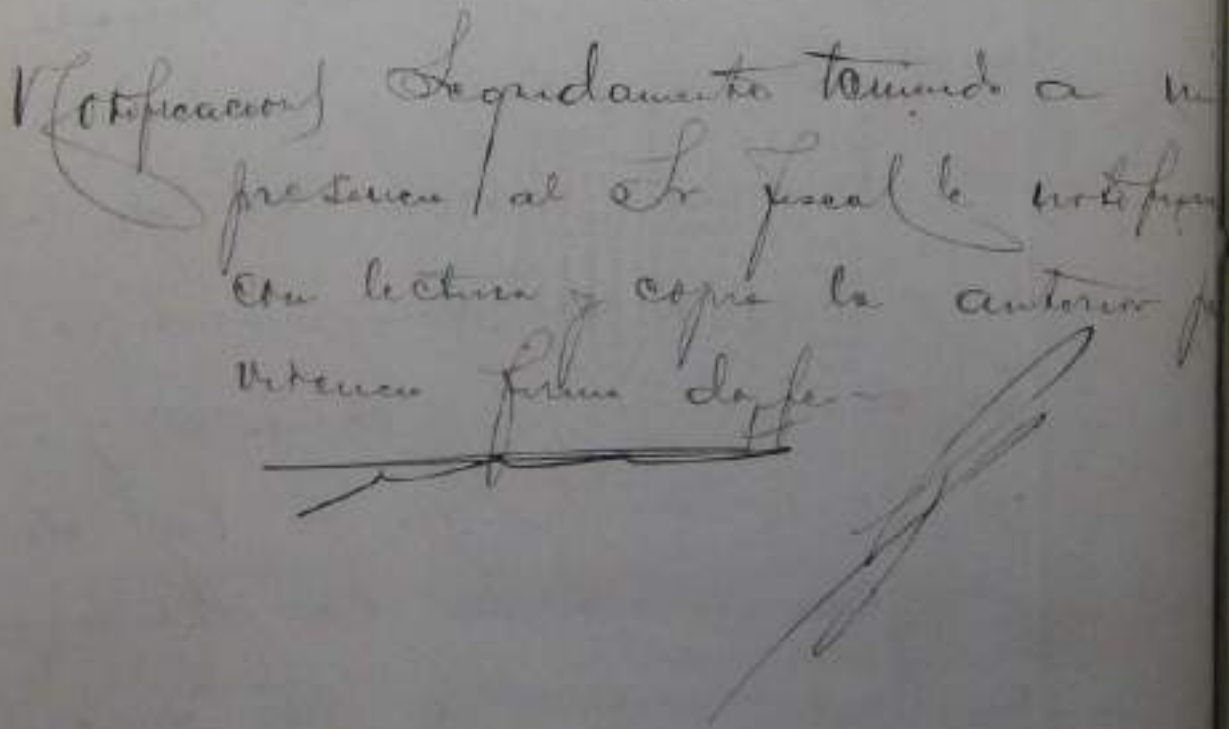 Notificacion) Seguidamente teniendo a mi
presencia al Sr Fiscal le notifique
con lectura y copia la anterior pro
videncia firma doy fe